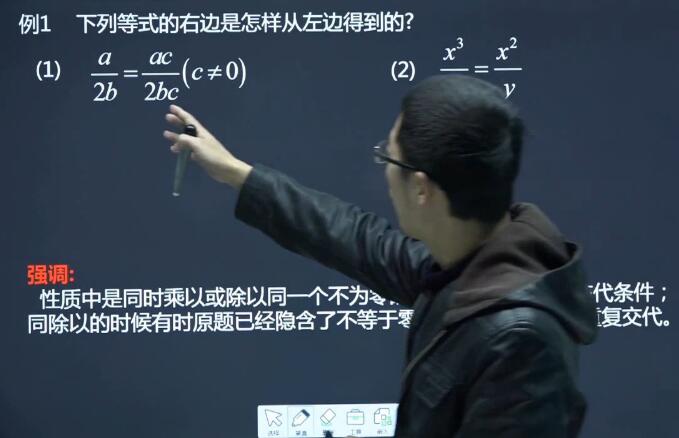 例1 下列等式的右边是怎样从左边得到的?
(1) a/2b = ac/2bc (c≠0)
(2) x³/ = x²/y
强调:
性质中是同时乘以或除以同一个不为零 代条件；
同除以的时候有时原题已经隐含了不等于零 重复交代。
选择 笔画 工具